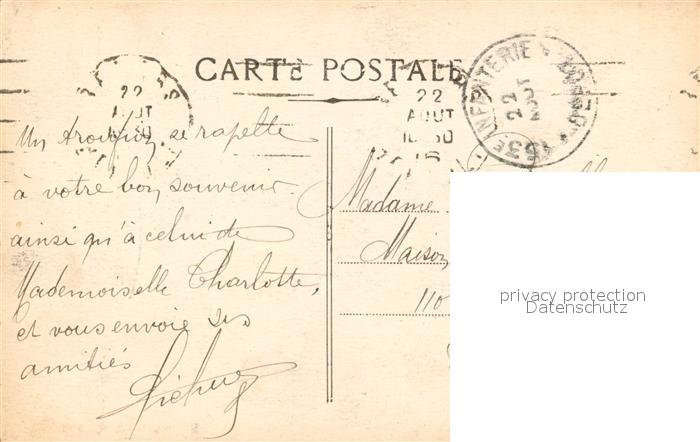 CARTE POSTALE
22
AOUT
22
AOUT
INFANTERIE
22
AOUT
63e
Un se rapelle
à votre bon souvenir
ainsi qu'à celui de
Mademoiselle Charlotte,
et vous envoie ses
amitiés
Madame
Maison
110
privacy protection
Datenschutz